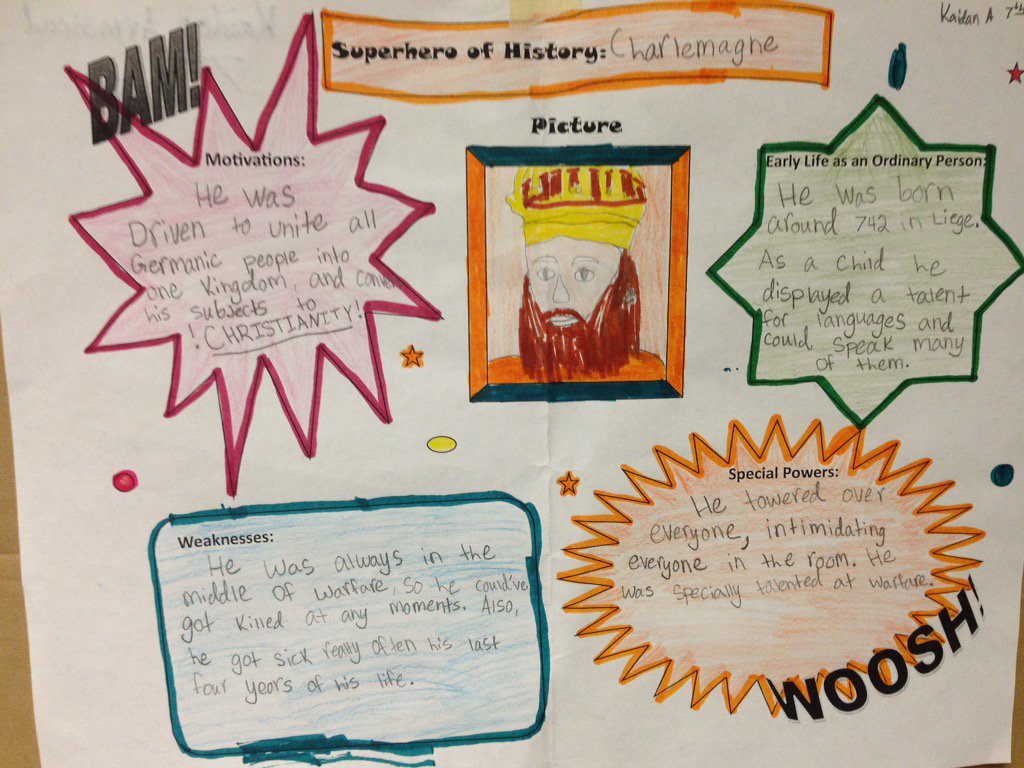 Kaidan A 7th
Superhero of History: Charlemagne
BAM!
Motivations:
He was
Driven to unite all
Germanic people into
one Kingdom, and conver
his subjects to
! CHRISTIANITY!
Picture
Early Life as an Ordinary Person:
He was born
around 742 in Liege.
As a child he
displayed a talent
for languages and
could speak many
of them.
Weaknesses:
He was always in the
middle of warfare, so he could've
got killed at any moments. Also,
he got sick really often his last
four years of his life.
Special Powers:
He towered over
everyone, intimidating
everyone in the room. He
was specially talented at warfare.
WOOSH!